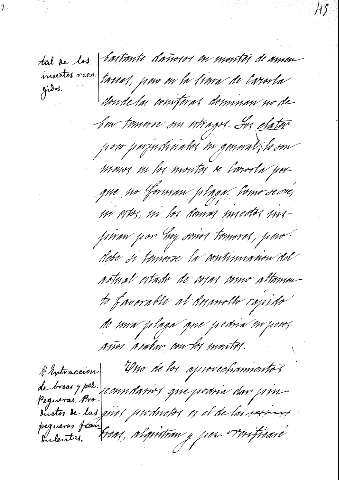 45
tal de los
insectos reco-
gidos.
bastante dañosos en montes de amen-
taceas, pero en la Sierra de Cazorla
donde las coníferas dominan no de-
ben temerse sus estragos. Los
poco perjudiciales en general, lo son
menos en los montes de Cazorla por
que no forman plaga. Como se ve,
ni estos, ni los demas insectos ins-
piran por hoy serios temores, pero
debe de temerse la continuacion del
actual estado de cosas como altamen-
te favorable al desarrollo rápido
de una plaga que podria en pocos
años acabar con los montes.
Extraccion
de breas y pez.
Pegueras. Pro-
ductos de las
pegueras
Uno de los aprovechamientos
secundarios que podria dar pin-
gües productos es el de las
breas, alquitran y pez